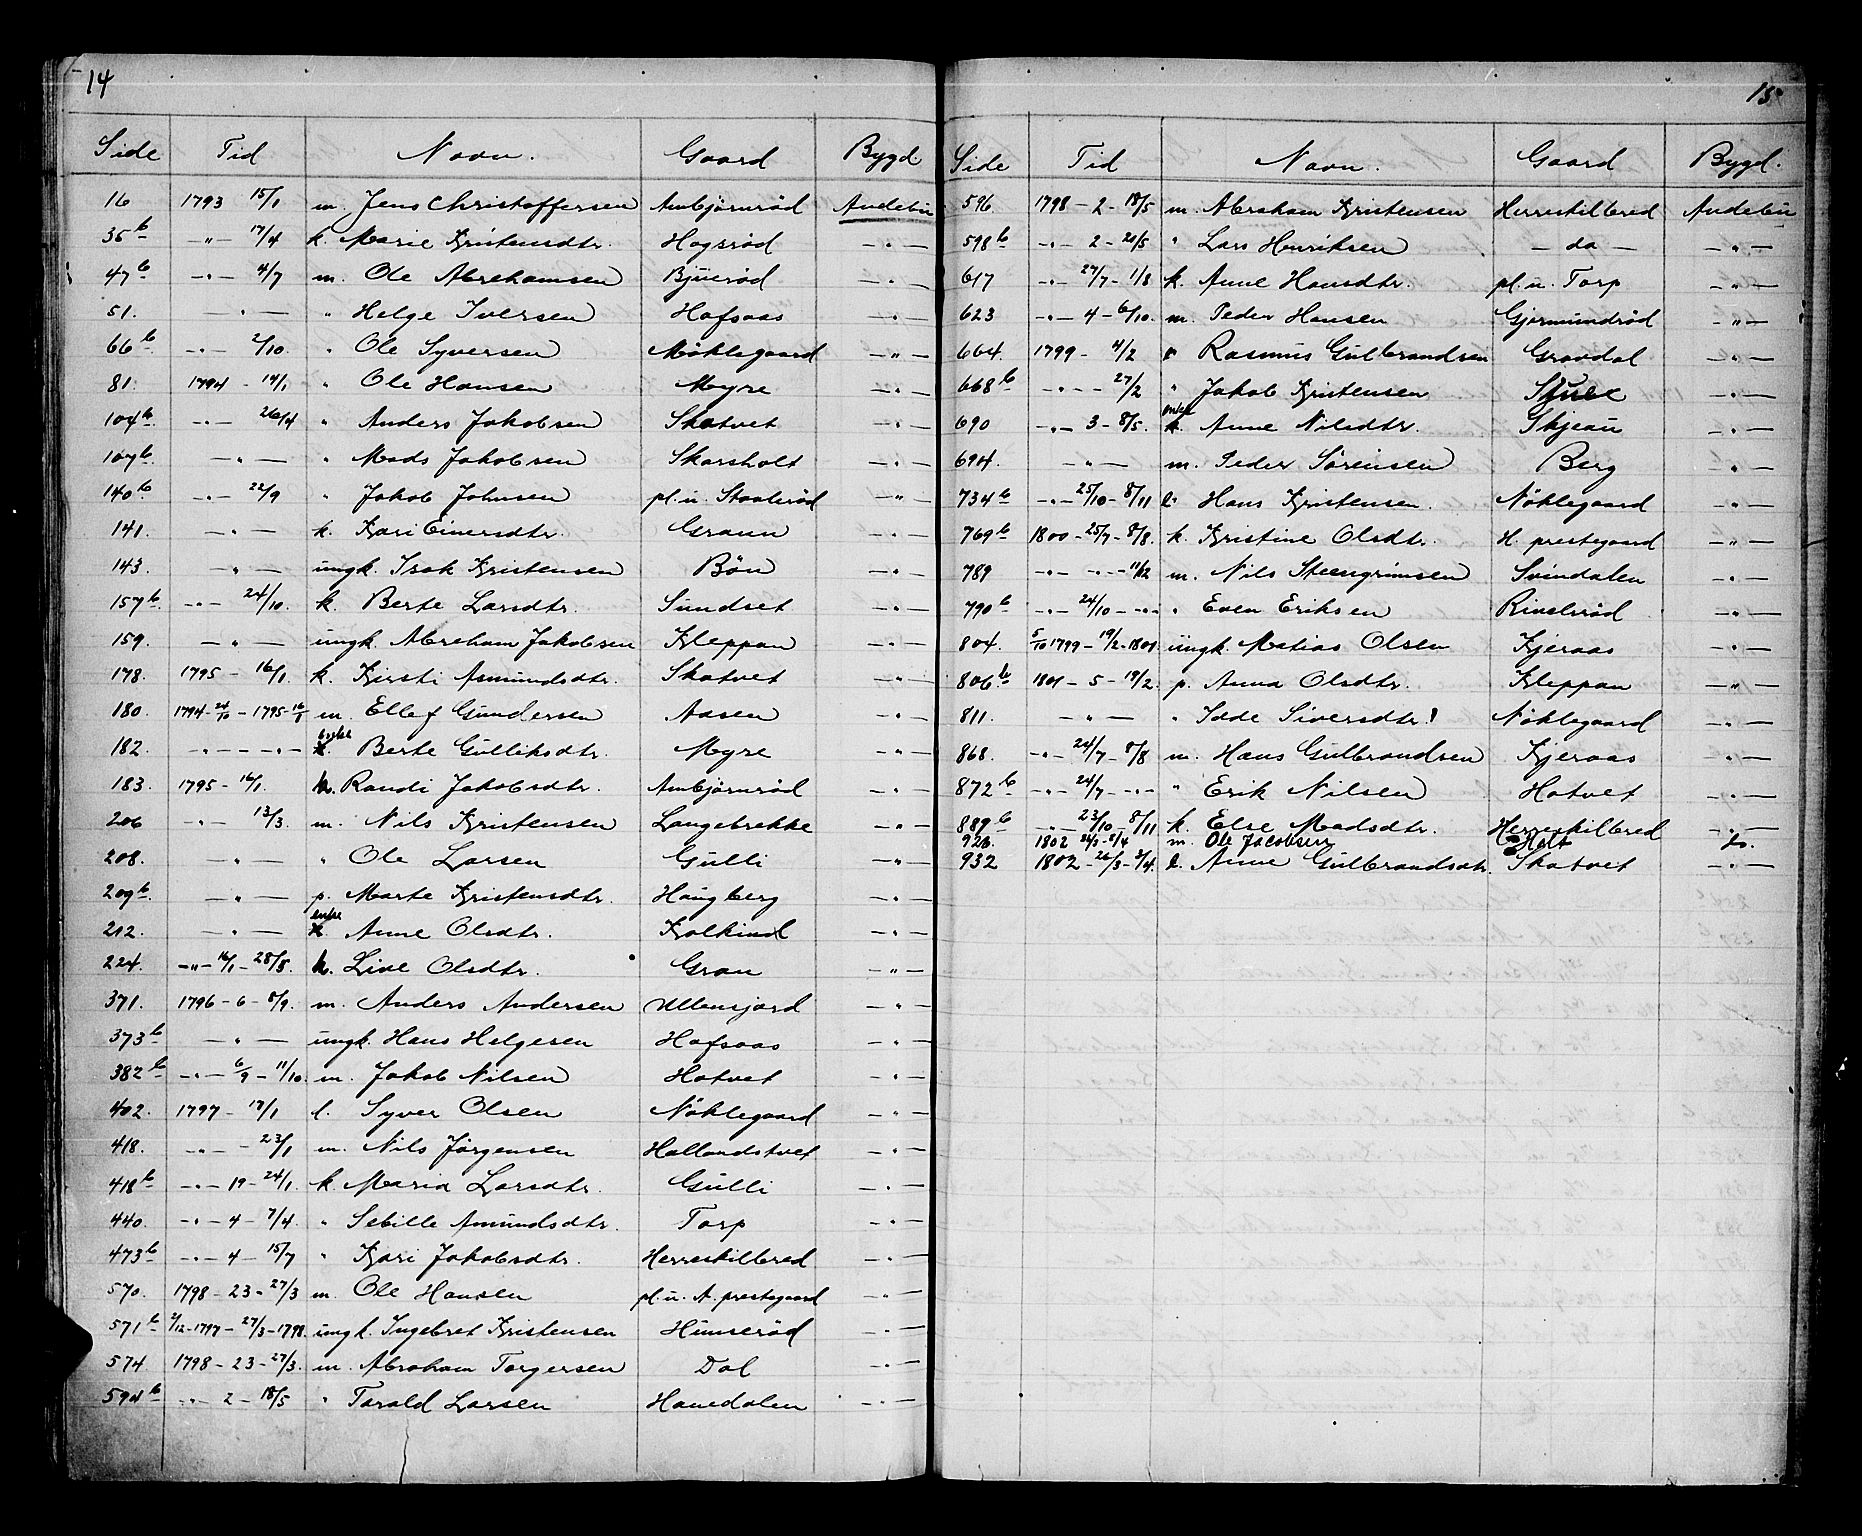 14
Side Tid Navn. Gaard Bygd
16 1793 15/1 m. Jens Christoffersen Ambjørnrød Andebu
35b -"- 17/4 k. Marie Kristensdtr. Hogsrød -"-
47b -"- 4/7 m. Ole Abrahamsen Bjuerød -"-
51. -"- " Helge Iversen Hafsaas -"-
66b -"- 2/10. " Ole Syversen Møklegaard -"-
81. 1794 - 14/1 " Ole Hansen Myre -"-
104b -"- 26/4 " Anders Jakobsen Skatvet -"-
107b -"- " Mads Jakobsen Skarsholt -"-
140b -"- 22/9 " Jakob Johnsen pl. u. Staalerød -"-
141. -"- k. Kari Einersdtr. Graun -"-
143. -"- ungk. Isak Kristensen Bøn -"-
157b -"- 24/10. k. Berte Larsdtr. Sundset -"-
159. -"- ungk. Abraham Jakobsen Kleppan -"-
178. 1795 - 16/1 k. Kirsti Asmundsdtr. Skatvet -"-
180. 1794-24/10-1795-16/1 m. Ellef Gundersen Aasen -"-
182. -"- -"- enke k. Berte Gulliksdtr. Myre -"-
183. 1795 - 16/1. k. Randi Jakobsdtr. Ambjørnrød -"-
206 -"- 13/3. m. Nils Kristensen Langebrekke -"-
208. -"- " Ole Larsen Gulli -"-
209b. -"- p. Marte Kristensdtr. Haugberg -"-
212. -"- enke k. Anne Olsdtr. Kolkind -"-
224. -"- 16/1 - 28/8. k. Live Olsdtr. Gran -"-
371. 1796 - 6 - 8/9. m. Anders Andersen Ullensjord -"-
373b -"- ungk. Hans Helgesen Hafsaas -"-
382b -"- 6/9 - 11/10. m. Jakob Nilsen Hotvet -"-
402. 1797 - 17/1 l. Syver Olsen Nøklegaard -"-
418. -"- - 23/1 m. Nils Jørgensen Hallandstvet -"-
418b -"- 19 - 24/1. k. Maria Larsdtr. Gulli -"-
440. -"- 4 - 7/4. " Sebille Amundsdtr. Torp -"-
473b -"- 4 - 15/7 " Kari Jakobsdtr. Herreskilbred -"-
570. 1798 - 23 - 27/3 m. Ole Hansen pl. u. A. prestegaard -"-
571b 2/12-1797 - 27/3-1798. ungk. Ingebret Kristensen Hunserød -"-
574 1798 - 23 - 27/3. m. Abraham Torgersen Dal -"-
594b -"- 2 - 18/5 " Tarald Larsen Hanedalen -"-
15
Side Tid Navn. Gaard Bygd.
596 1798 - 2 - 18/5 m. Abraham Kristensen Herreskilbred Andebu
598b -"- 2 - 21/5 " Lars Henriksen - do - -"-
617 -"- 27/7 - 1/8 k. Anne Hansdtr. pl. u. Torp -"-
623 -"- 4 - 6/10. m. Peder Hansen Gjermundrød -"-
664. 1799 - 4/2 " Rasmus Gulbrandsen Gravdal -"-
668b -"- - 27/2 " Jakob Kristensen Skjeee -"-
690 -"- 3 - 8/5. enke k. Anne Nilsdtr. Skjeau -"-
694. -"- m. Peder Sørensen Berg -"-
734b -"- 25/10 - 8/11 l. Hans Kristensen. Nøklegaard -"-
769b 1800 - 25/7 - 8/8. k. Kristine Olsdtr. H. prestegaard -"-
789 -"- -"- 11/12 m. Nils Steengrimsen Svindalen -"-
790b -"- 24/10 -"- " Even Eriksen Rivelsrød -"-
804. 5/10 1799 - 19/2-1801 ungk. Matias Olsen Kjeraas -"-
806b 1801 - 5 - 19/2. p. Anna Olsdtr. Kleppan -"-
811. -"- " Idde Siversdtr.! Nøklegaard -"-
868. -"- 24/7 - 8/8 m. Hans Gulbrandsen Kjeraas -"-
872b -"- 24/7 -"- " Erik Nilsen Hotvet -"-
889b -"- 23/10 - 8/11 k. Else Madsdtr. Herreskilbred -"-
926. 1802 24/3-8/4 m. Ole Jacobsen Holt do.
932 1802 - 26/3 - 8/4. l. Anne Gulbrandsdtr. Skatvet -"-